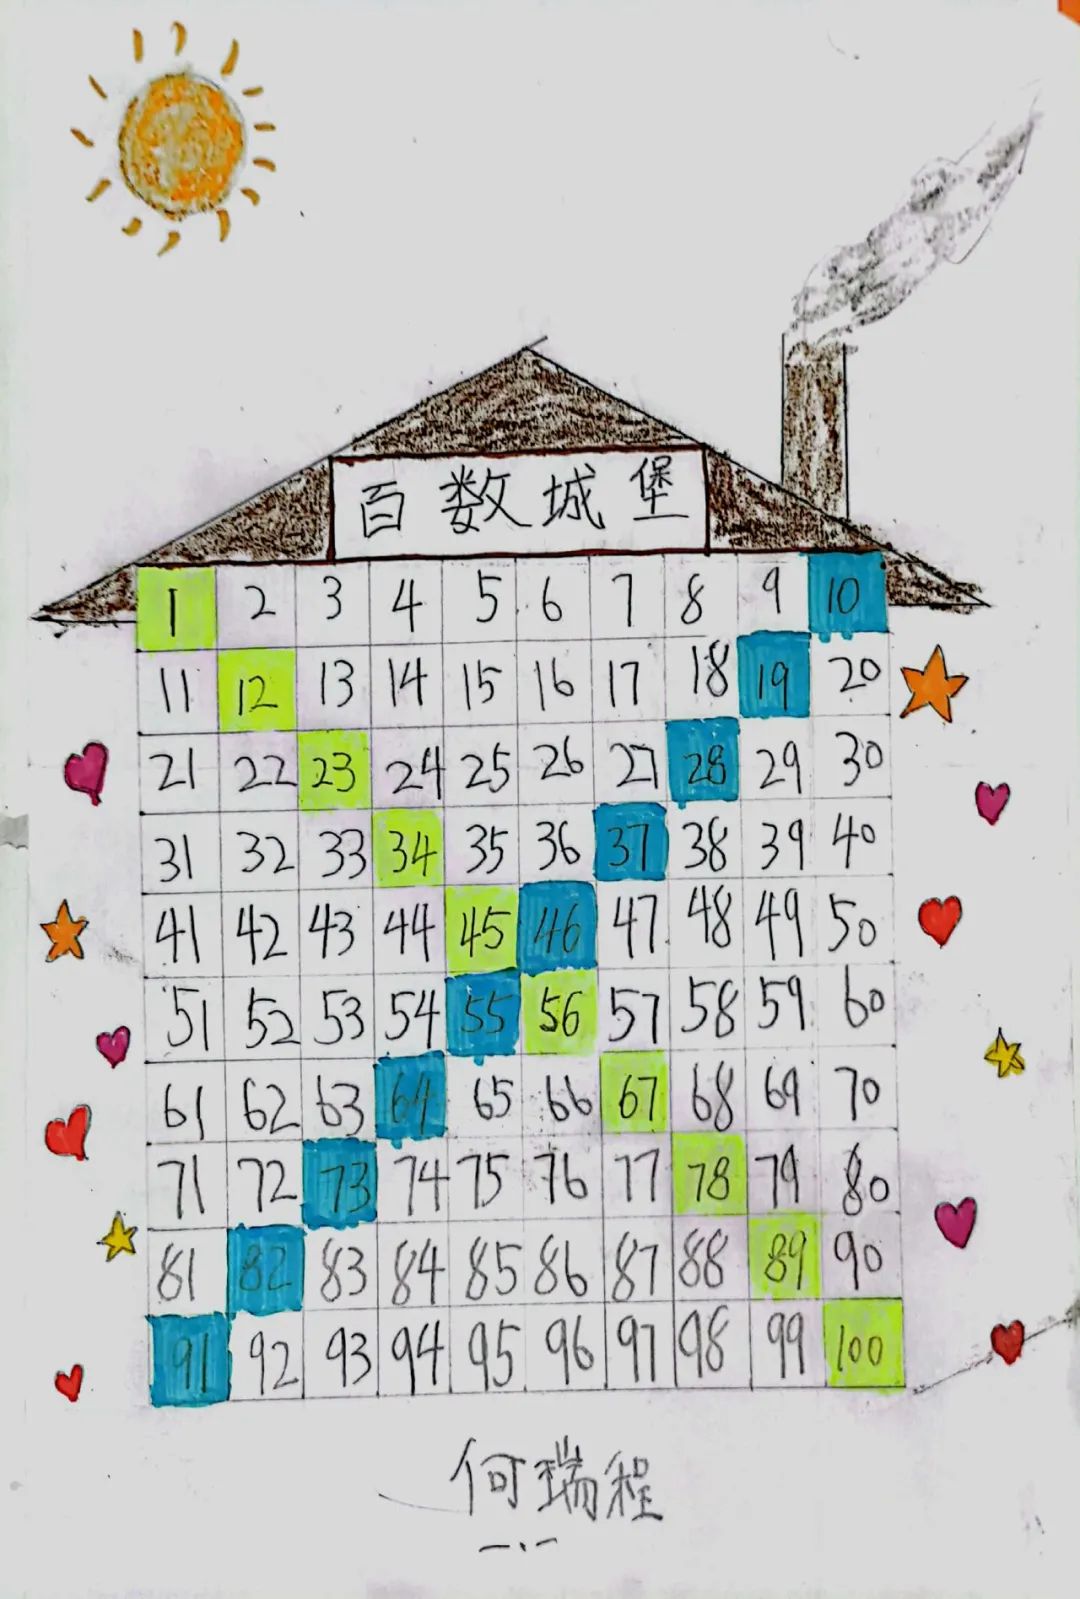 百数城堡
1 2 3 4 5 6 7 8 9 10
11 12 13 14 15 16 17 18 19 20
21 22 23 24 25 26 27 28 29 30
31 32 33 34 35 36 37 38 39 40
41 42 43 44 45 46 47 48 49 50
51 52 53 54 55 56 57 58 59 60
61 62 63 64 65 66 67 68 69 70
71 72 73 74 75 76 77 78 79 80
81 82 83 84 85 86 87 88 89 90
91 92 93 94 95 96 97 98 99 100
何瑞程
一.一